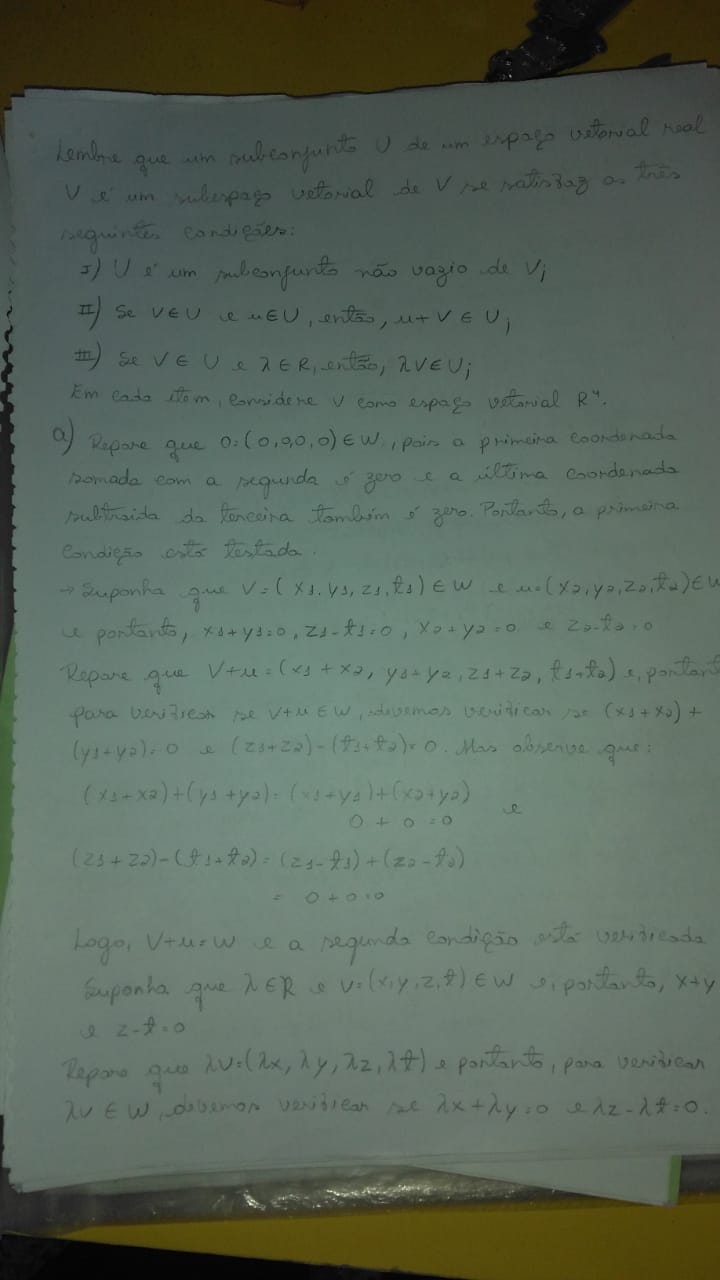 Lembre que um subconjunto U de um espaço vetorial real
V é um subespaço vetorial de V se satisfaz as três
seguintes condições:
I) U é um subconjunto não vazio de V;
II) Se V ∈ U e u ∈ U, então, u + V ∈ U;
III) Se V ∈ U e λ ∈ R, então, λV ∈ U;
Em cada item, considere V como espaço vetorial R⁴.
a) Repare que 0=(0,0,0,0) ∈ W, pois a primeira coordenada
somada com a segunda é zero e a última coordenada
subtraida da terceira também é zero. Portanto, a primeira
condição está testada.
→ Suponha que V=(x1.y1,z1,t1) ∈ W e u=(x2,y2,z2,t2) ∈ W
e portanto, x1+y1=0, z1-t1=0, x2+y2=0 e z2-t2=0
Repare que V+u=(x1+x2, y1+y2, z1+z2, t1+t2) e, portant
para verificar se V+u ∈ W, devemos verificar se (x1+x2)+
(y1+y2)=0 e (z1+z2)-(t1+t2)=0. Mas observe que:
(x1+x2)+(y1+y2)=(x1+y1)+(x2+y2)
0+0=0 e
(z1+z2)-(t1+t2)=(z1-t1)+(z2-t2)
= 0+0=0
Logo, V+u=W e a segunda condição está verificada
Suponha que λ ∈ R e V=(x,y,z,t) ∈ W e, portanto, x+y
e z-t=0
Repare que λV=(λx, λy, λz, λt) e portanto, para verificar
λV ∈ W, devemos verificar se λx+λy=0 e λz-λt=0.